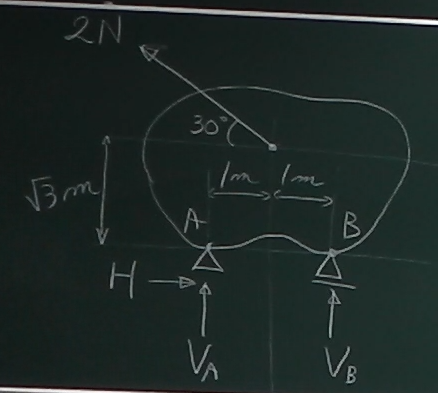 2N
30°
1m 1m
√3 m
A B
H
V_A V_B